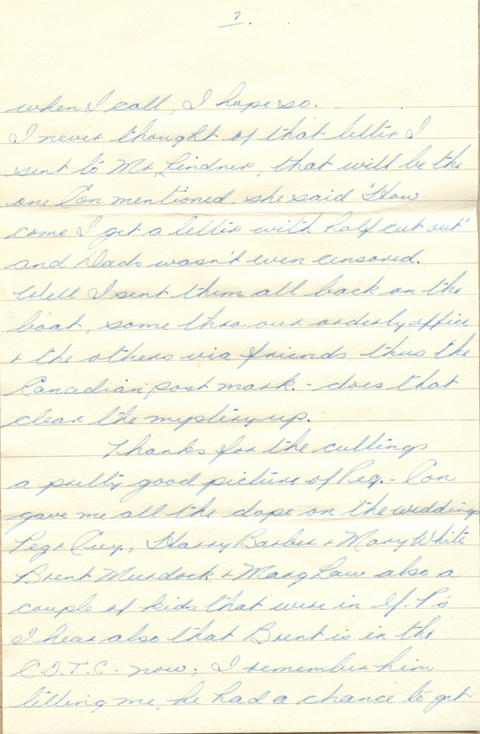 7.
when I call, I hope so.
I never thought of that letter I
sent to Mr Lindner, that will be the
one Con mentioned. she said 'How
come I get a letter with half cut out'
and Dads wasn't even censored.
Well I sent them all back on the
boat, some thro our orderly office
& the others via friends, thus the
Canadian post mark. - does that
clear the mystery up.
Thanks for the cuttings
a pretty good picture of Peg. - Con
gave me all the dope on the weddings
Peg & Guy, Harry Barber & Mary White
Brent Murdock & Marg Law also a
couple of kids that were in
I hear also that Brent is in the
C.O.T.C. now; I remember him
telling me, he had a chance to get